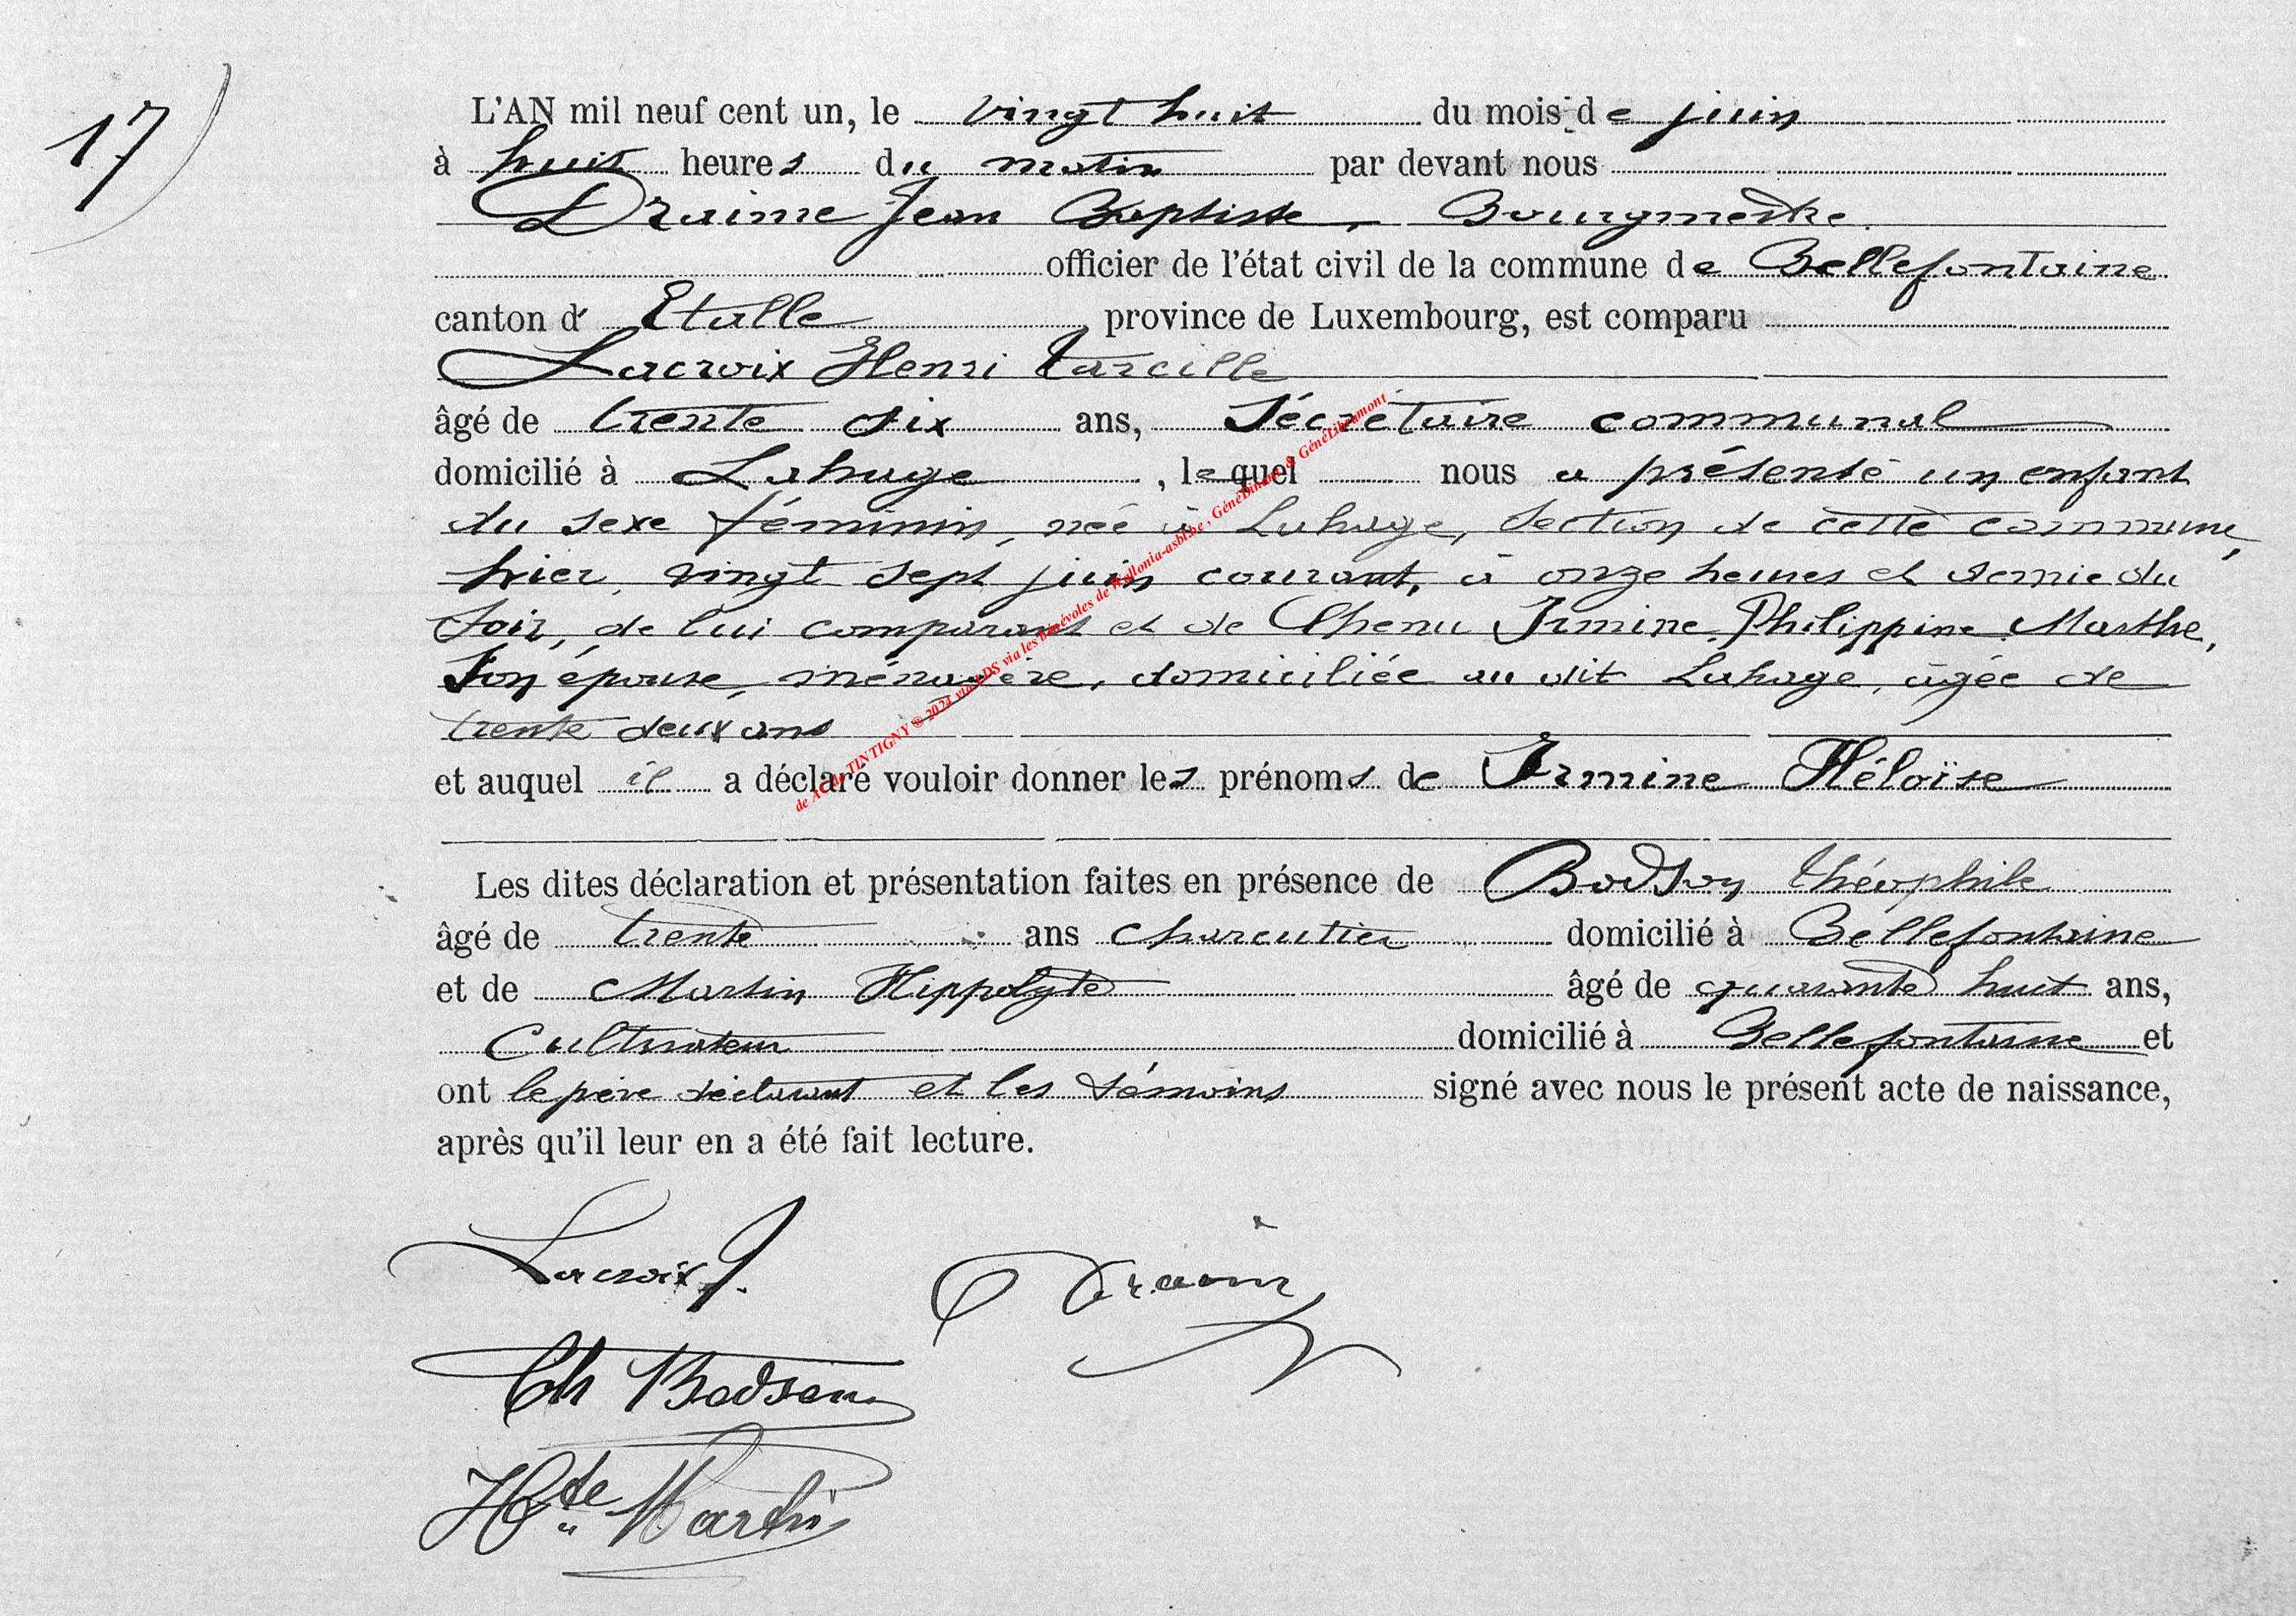 17)
L'AN mil neuf cent un, le vingt huit du mois de juin
à huit heures du matin par devant nous
Draime Jean Baptiste, Bourgmestre
officier de l'état civil de la commune de Bellefontaine
canton d' Etalle province de Luxembourg, est comparu
Lacroix Henri Tarcille
âgé de trente six ans, Sécrétaire communal
domicilié à Lahage, lequel nous a présenté un enfant
du sexe féminin, née à Lahage, section de cette commune,
hier, vingt sept juin courant, à onze heures et demie du
soir, de lui comparant et de Thenu Irmine Philippine Marthe,
son épouse, ménagère, domiciliée au dit Lahage, âgée de
trente deux ans
et auquel il a déclaré vouloir donner les prénoms de Irmine Héloïse
Les dites déclaration et présentation faites en présence de Bodson Théophile
âgé de trente ans charcutier domicilié à Bellefontaine
et de Martin Hippolyte âgé de quarante huit ans,
Cultivateur domicilié à Bellefontaine et
ont le père déclarant et les témoins signé avec nous le présent acte de naissance,
après qu'il leur en a été fait lecture.
Lacroix
Draime
Th Bodson
Hte Martin
de AC de TINTIGNY © 2024 via LDS via les bénévoles de Wallonia-asbl.be, GénéDinant & GénéLibramont